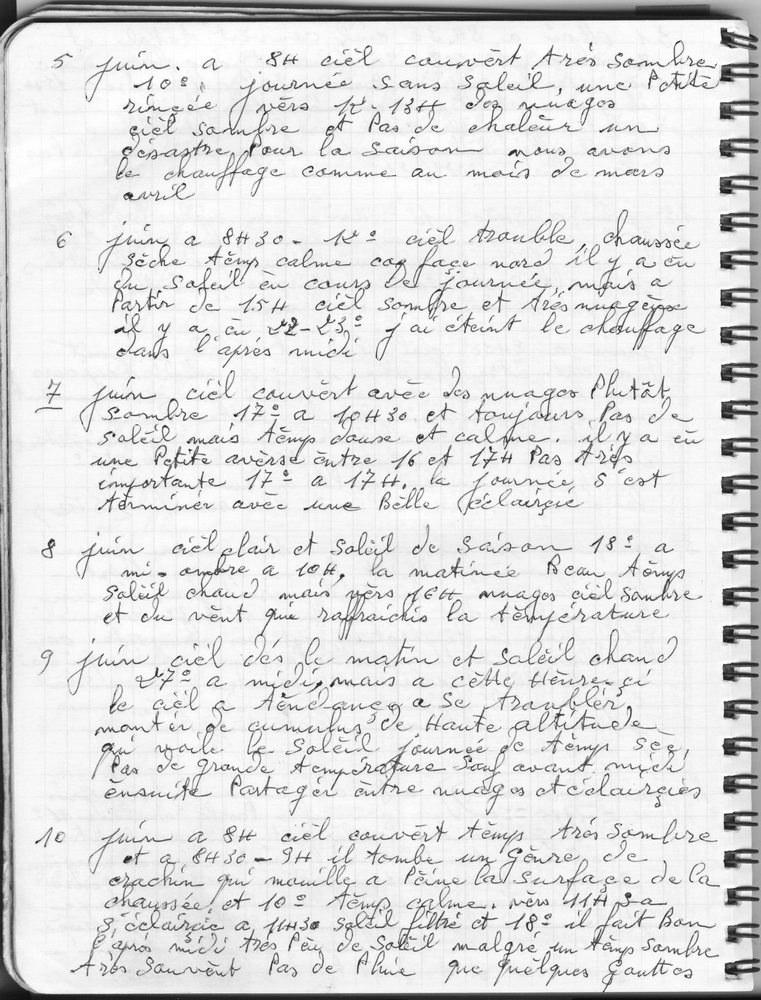 5 juin. a 8H cièl couvèrt trés sombre
10°, journée sans soleil, une Petite
rincée vèrs 12-13H des nuages
cièl sombre et Pas de chalèur un
désastre Pour la saison nous avons
le chauffage comme au mois de mars
avril
6 juin a 8H30 - 12° cièl trouble, chaussée
sèche tèmps calme face nord il y a èu
du solèil èn cours de journée, mais a
Partir de 15H cièl sombre et trés nuagèuse
il y a èu 22-23° j'ai éteint le chauffage
dans l'aprés midi
7 juin cièl couvèrt avèc des nuages Plutôt
sombre 17° a 10H30 et toujours Pas de
solèil mais tèmps douse et calme. il y a èu
une Petite avèrse èntre 16 et 17H Pas trés
importante 17° a 17H. la journée s'est
tèrminér avèc une Bèlle éclairçié
8 juin cièl clair et solèil de saison 18° a
mi-ombre a 10H, la matinée Beau tèmps
solèil chaud mais vèrs 16H nuages cièl sombre
et du vènt qui raffraichis la tèmpérature
9 juin cièl dés le matin et solèil chaud
27° a midi, mais a cètte Hèure-çi
le cièl a tèndançe a se troublér,
montér de cumulus de Haute altitude
qui voile le solèil journée de tèmps sèc,
Pas de grande tempèrature sauf avant midi
ènsuite Partagér èntre nuages et éclairçies
10 juin a 8H cièl couvèrt tèmps trés sombre
et a 8H30-9H il tombe un gènre de
crachin qui mouille a Pèine la surface de la
chaussée, et 10° tèmps calme. vèrs 11H sa
s'éclaircie a 11H30 solèil filtré et 18° il fait Bon
l'aprés midi trés Pèu de solèil malgré un tèmps sombre
trés souvènt Pas de Pluie que quèlques gouttes